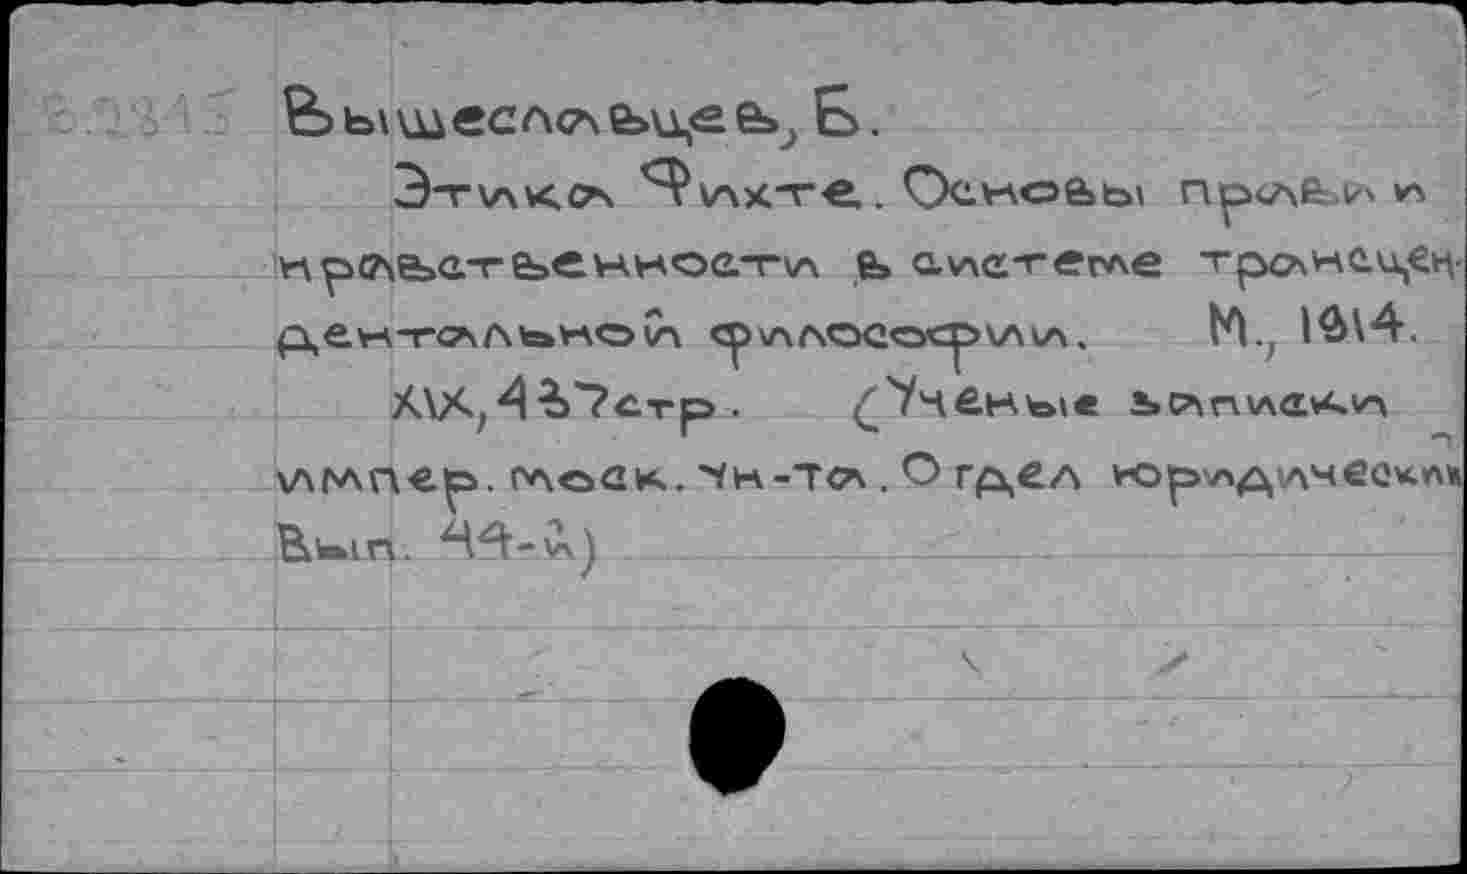 Вышеславцев, Б.
Этика Фихте. Основы права и
нравственности в системе трансцен-
дентальной философии. М., 1914.
XIX, 437стр. (Учёные записки
импер. моск. Ин-та. Отдел юридически
Вып. 44-й)